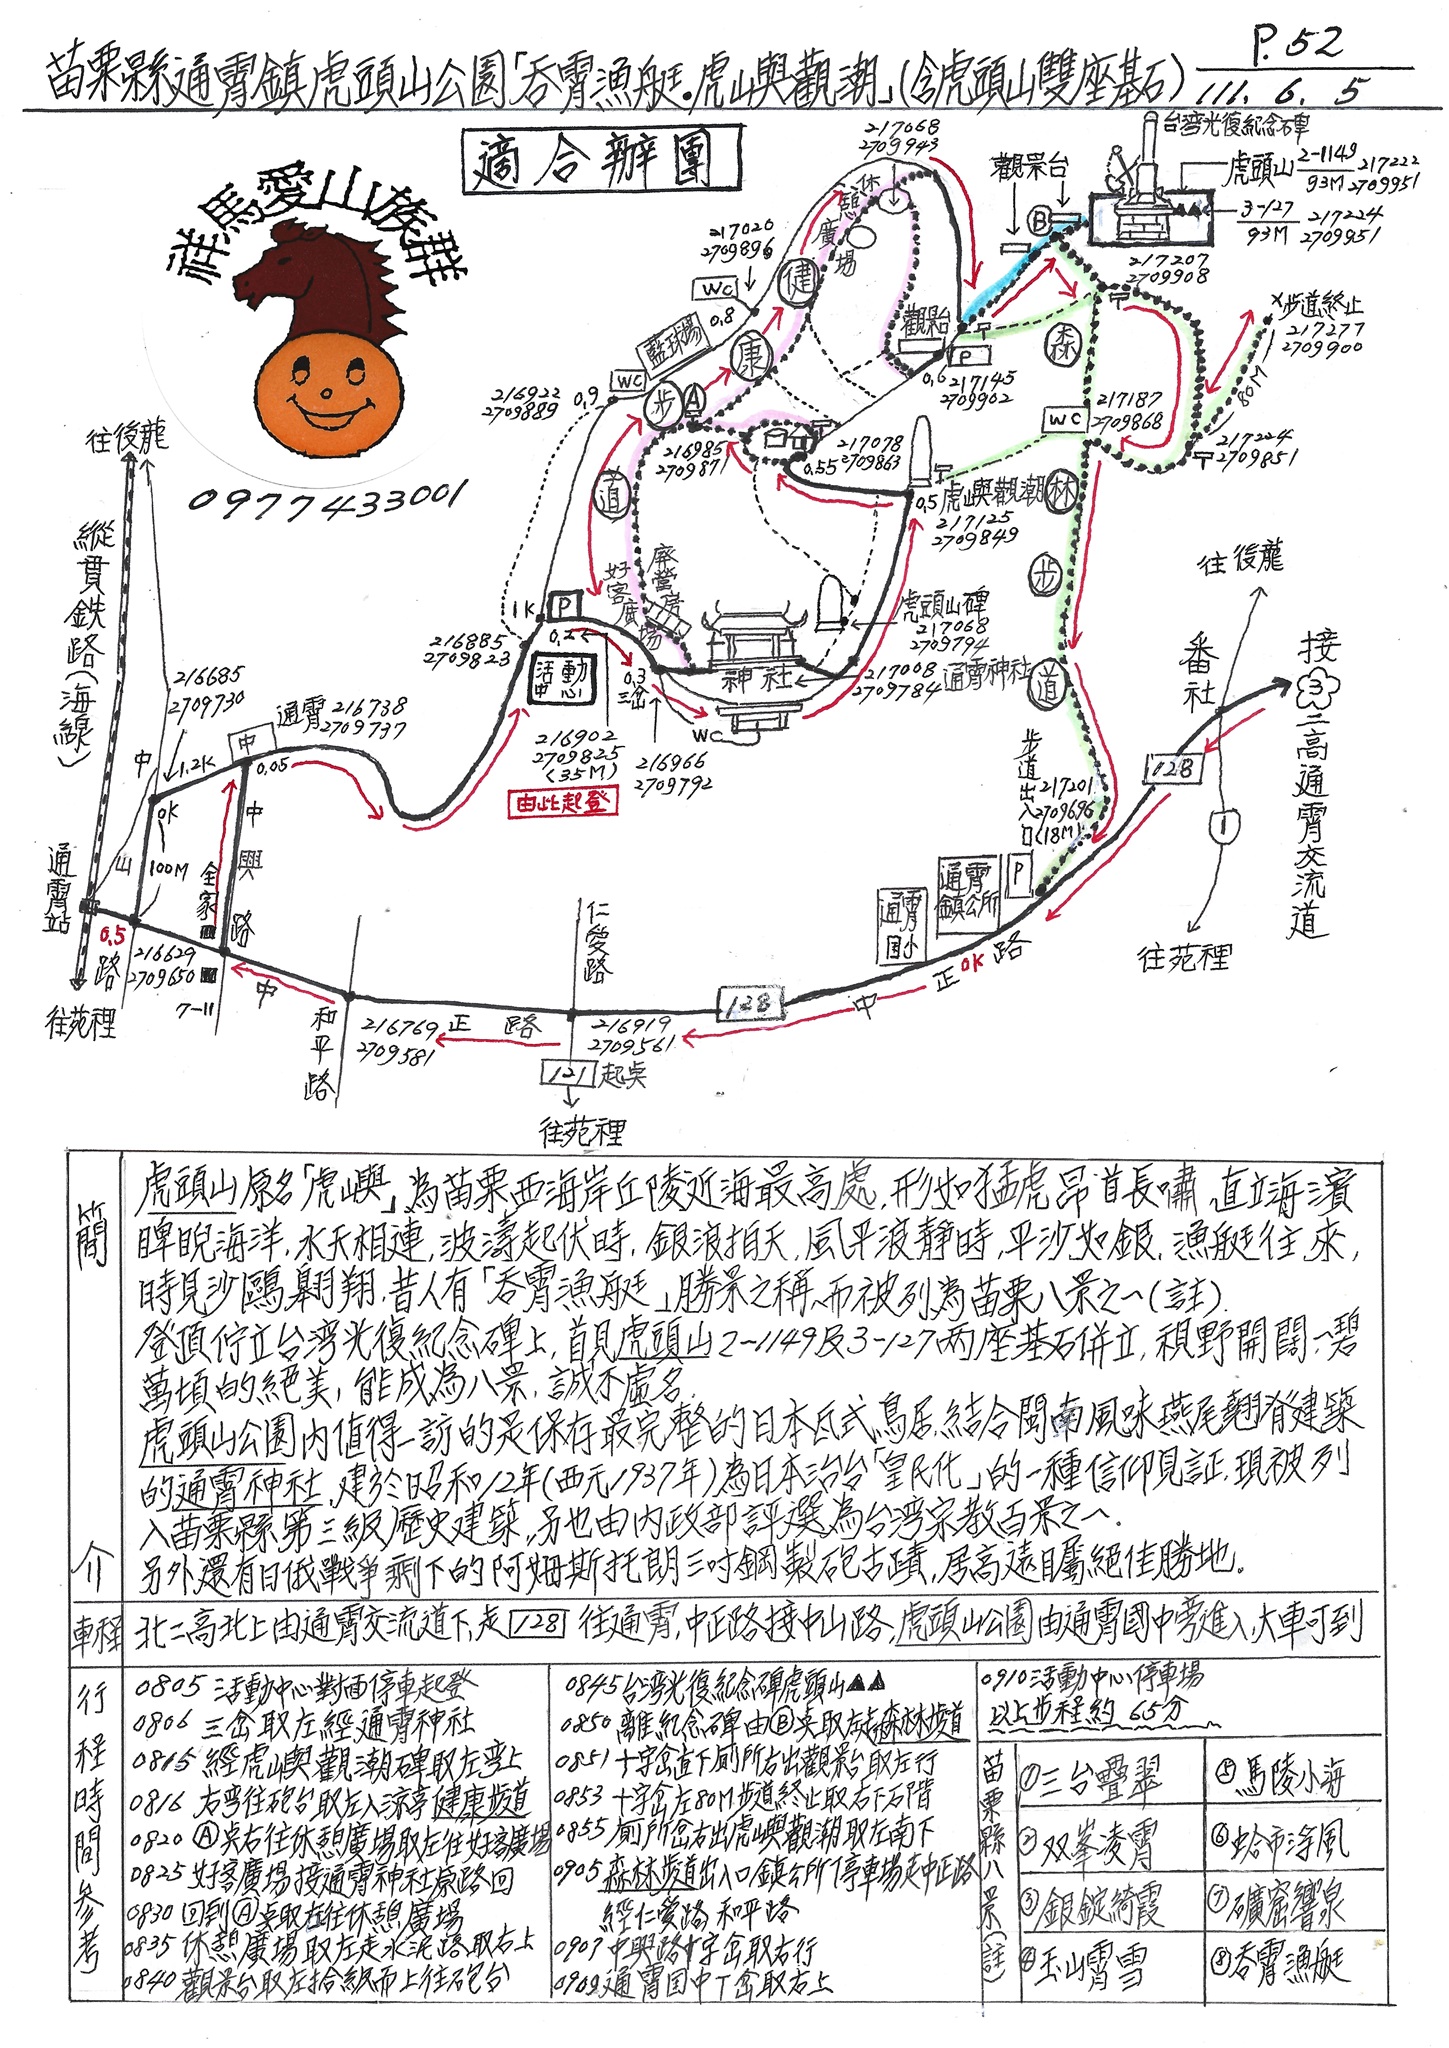 P.52
苗栗縣通霄鎮虎頭山公園「吞霄漁艇•虎嶼觀潮」(含虎頭山雙座基石)
111. 6. 5
適合辦團
祥馬愛山族群
0977433001
台湾光復紀念碑
觀景台
虎頭山
2-1149
93M
217222
2709951
3-127
93M
217224
2709951
B
217207
2709908
217068
2709943
休憩廣場
217020
2709896
WC
0.8
籃球場
WC
216922
2709889
0.9
健康步道
A
216985
2709871
觀景台
P
0.6
217145
2709902
森林步道
步道終止
217277
2709900
80M
217187
2709868
WC
217224
2709851
217078
2709863
0.55
0.5
虎嶼觀潮
217125
2709849
虎頭山碑
217068
2709794
217008
2709784
通霄神社
神社
WC
廢營房
好客廣場
1K
P
0.2
216885
2709823
活動中心
0.3
三岔
216902
2709825
(35M)
由此起登
216966
2709792
往後龍
縱貫鉄路(海線)
216685
2709730
中山路
1.2K
中
通霄
216738
2709737
0.05
0K
100M
中興路
全家
通霄站
0.5
216629
2709650
7-11
往苑裡
中正路
和平路
216769
2709581
仁愛路
216919
2709561
121
起点
往苑裡
128
中正路
0K
通霄國小
通霄鎮公所
P
步道出入口
217201
2709696
(18M)
128
往後龍
番社
1
往苑裡
3
接二高通霄交流道
簡介
虎頭山原名「虎嶼」為苗栗西海岸丘陵近海最高處,形如猛虎昂首長嘯,直立海濱
睥睨海洋,水天相連,波濤起伏時,銀浪拍天,風平波靜時,平沙如銀,漁艇往來,
時見沙鷗翱翔,昔人有「吞霄漁艇」勝景之稱、而被列為苗栗八景之一(註).
登頂佇立台湾光復紀念碑上,首見虎頭山2-1149及3-127兩座基石併立,視野開闊,一碧
萬頃的絕美,能成為八景,誠不虛名.
虎頭山公園內值得一訪的是保存最完整的日本瓦式鳥居,結合閩南風味燕尾翹脊建築
的通霄神社,建於昭和12年(西元1937年)為日本治台「皇民化」的一種信仰見証,現被列
入苗栗縣第三級歷史建築,另也由內政部評選為台湾宗教百景之一.
另外還有日俄戰爭剩下的阿姆斯托朗三吋鋼製砲古蹟,居高遠矚絕佳勝地。
車程
北二高北上由通霄交流道下,走128往通霄,中正路接中山路,虎頭山公園由通霄國中旁進入,大車可到
行程時間參考
0805 活動中心對面停車起登
0806 三岔取左經通霄神社
0815 經虎嶼觀潮碑取左弯上
0816 右弯往砲台取左入涼亭健康步道
0820 Ⓐ点右往休憩廣場取左往好客廣場
0825 好客廣場接通霄神社原路回
0830 回到Ⓐ点取左往休憩廣場
0835 休憩廣場取左走水泥路取右上
0840 觀景台取左拾級而上往砲台
0845 台湾光復紀念碑虎頭山▲▲
0850 離紀念碑由Ⓑ点取左走森林步道
0851 十字岔直下廁所右出觀景台取左行
0853 十字岔左80M步道終止取右下石階
0855 廁所岔右出虎嶼觀潮取左南下
0905 森林步道出入口鎮公所停車場走中正路
經仁愛路,和平路
0907 中興路十字岔取右行
0909 通霄国中丁岔取右上
0910 活動中心停車場
以上步程約 65分
苗栗縣八景(註)
①三台疊翠
②双峯凌霄
③銀錠綺霞
④玉山霽雪
⑤馬陵小海
⑥蛤市浮風
⑦礦窟響泉
⑧吞霄漁艇